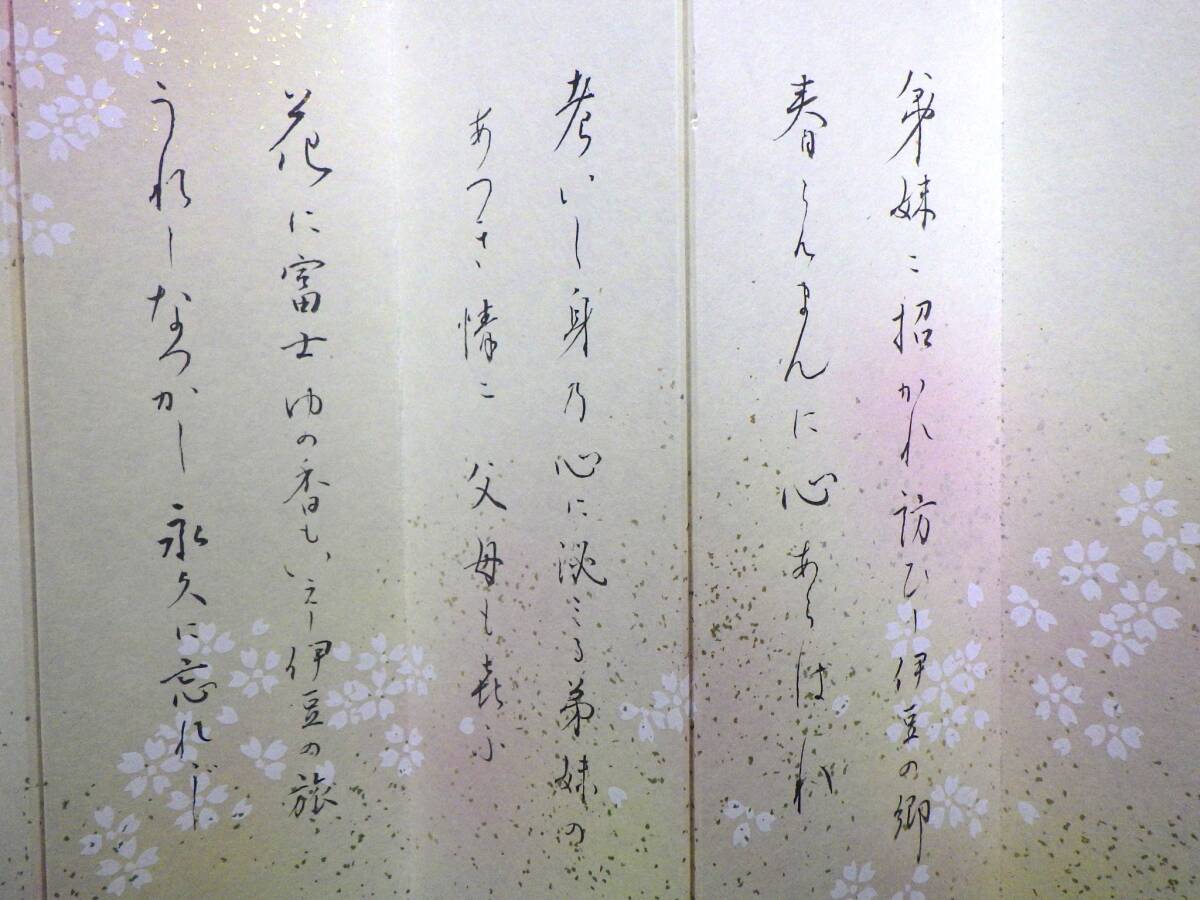 弟妹に招かれ訪ひし伊豆の郷
春らんまんに心あらはれ
老いし身乃心に沁みる弟妹の
あつき情に父母も喜ふ
花に富士ゆの香もいえし伊豆の旅
うれしなつかし永久に忘れじ